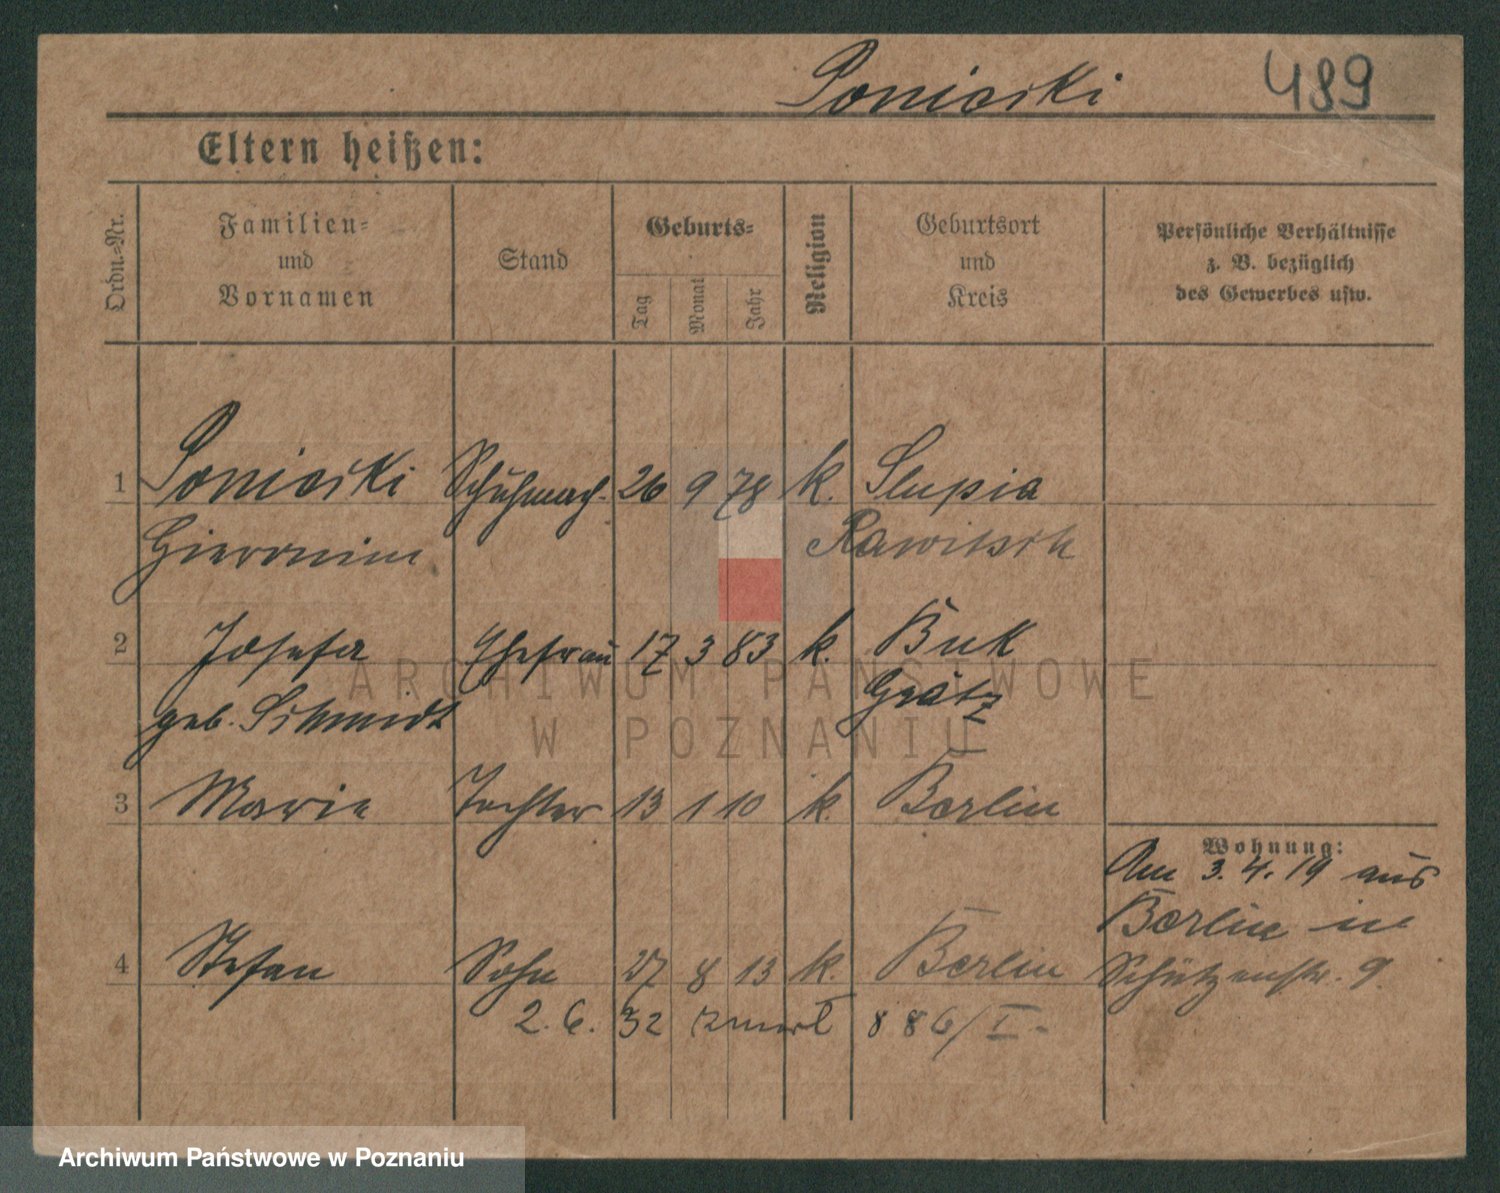 Poniecki 489
Eltern heißen:
Ordn.-Nr.
Familien-
und
Vornamen
Stand
Geburts-
Tag
Monat
Jahr
Religion
Geburtsort
und
Kreis
Persönliche Verhältnisse
z. B. bezüglich
des Gewerbes usw.
1 Poniecki Schuhmach. 26 9 78 k. Slupia
Hieronim Rawitsch
2 Josefa Ehefrau 17 3 83 k. Buk
geb. Schmidt Grätz
3 Marie Tochter 13 1 10 k. Berlin
Wohnung:
Am 3.4.19 aus
Berlin in
4 Stefan Sohn 27 8 13 k. Berlin Schützenstr. 9.
2.6.32 zmarł 886/I.
ARCHIWUM PAŃSTWOWE
W POZNANIU
Archiwum Państwowe w Poznaniu